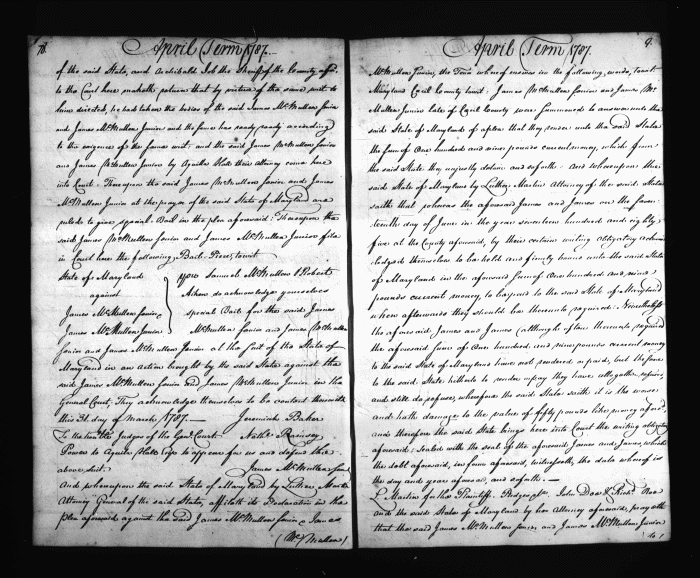 78.
April Term 1787.
of the said State, and Archibald Job the Sheriff of the County afsd.
to the Court here maketh return that by virtue of the same writ to
him directed, he had taken the bodies of the said James McMullen Senior
and James McMullen Junior and the same has ready according
to the exigence of the same writ. and the said James McMullen Senior
and James McMullen Junior by Aquila Hall their attorney come here
into Court. Thereupon the said James McMullen Senior and James
McMullen Junior at the prayer of the said State of Maryland are
ruled to give special Bail in the plea aforesaid: Thereupon the
said James McMullen Senior and James McMullen Junior file
in Court here the following Bail Piece, towit
State of Maryland
against
James McMullen Senior &
James McMullen Junior
You Samuel McMullen & Robert
Aiken do acknowledge yourselves
special Bail for the said James
McMullen Senior and James McMullen
Junior at the suit of the State of
Maryland in an action brought by the said State against the
said James McMullen Senior and James McMullen Junior in the
General Court, They acknowledge themselves to be content therewith
this 31. day of March 1787. Jeremiah Baker
To the honble Judges of the Genl. Court Nathl. Ramsey
Power to Aquila Hall Esqr. to appear for us and defend the
above suit. James McMullen
And whereupon the said State of Maryland by Luther Martin
Attorney General of the said State, affileth its Declaration in the
plea aforesaid against the said James McMullen Senior & James
(McMullen)
9.
April Term 1787.
McMullen Junior, the Tenor whereof ensues in the following words, towit
Maryland Cecil County towit. James McMullen Senior and James Mc
Mullen Junior late of Cecil County were summoned to answer unto the
said State of Maryland of a plea that they render unto the said State
the sum of One hundred and nine pounds current money, which from
the said State they unjustly detain and so forth. And whereupon the
said State of Maryland by Luther Martin Attorney of the said State
saith that whereas the aforesaid James and James on the
teenth day of June in the year seventeen hundred and eighty
five at the County aforesaid, by their certain writing obligatory acknow
ledged themselves to be held and firmly bound unto the said State
of Maryland in the aforesaid sum of One hundred and nine
pounds current money, to be paid to the said State of Maryland
when afterwards they should be thereunto required. Nevertheless
the aforesaid James and James (although often thereunto required
the aforesaid sum of One hundred and nine pounds current money
to the said State of Maryland have not rendered or paid, but the same
to the said State hitherto to render or pay they have altogether refused
and still do refuse, wherefore the said State saith it is the worse
and hath damage to the value of fifty pounds like money aforesd.
and therefore the said State brings here into Court the writing obligatory
aforesaid: sealed with the seal of the aforesaid James and James, which
the debt aforesaid, in form aforesaid, witnesseth, the date whereof is
the day and year aforesaid, and so forth. —
L. Martin for the Plaintiff. John Doe & Richd. Roe
And the said State of Maryland by her Attorney aforesaid, prays
that the said James McMullen Senior, and James McMullen Junior